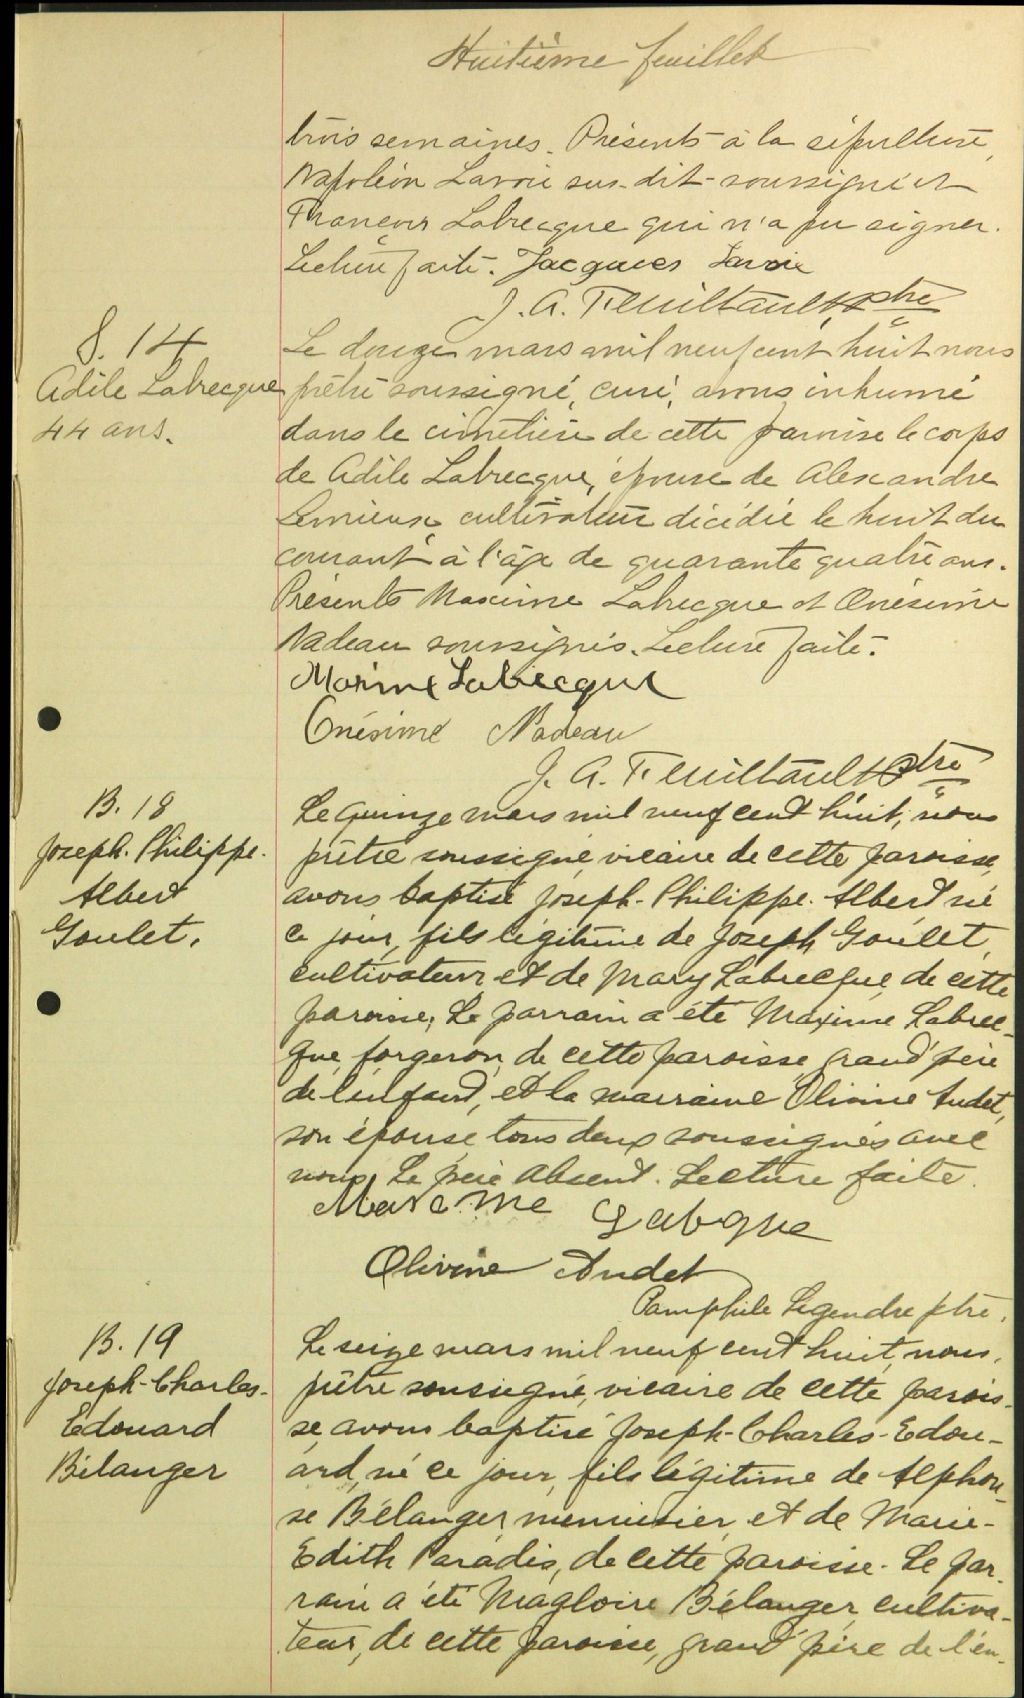 Huitième feuillet
trois semaines. Présents à la sépulture,
Napoléon Lavoie sus-dit soussigné et
François Labrecque qui n'a pu signer.
Lecture faite. Jacques Lavoie
J. A. Feuiltault ptre
S. 14
Adile Labrecque
44 ans.
Le douze mars mil neuf cent huit nous
prêtre soussigné, curé, avons inhumé
dans le cimetière de cette paroisse le corps
de Adile Labrecque, épouse de Alexandre
Lemieux cultivateur décédée le huit du
courant à l'âge de quarante quatre ans.
Présents Maxime Labrecque et Onésime
Nadeau soussignés. Lecture faite.
Labrecque
Onésime Nadeau
J. A. Feuiltault Ptre
B. 18
Joseph-Philippe-
Albert
Goulet.
Le quinze mars mil neuf cent huit, nous
prêtre soussigné, vicaire de cette paroisse,
avons baptisé Joseph-Philippe-Albert né
ce jour, fils légitime de Joseph Goulet,
cultivateur, et de Mary Labrecque, de cette
paroisse. Le parrain a été Maxime Labrec-
que, forgeron, de cette paroisse, grand'père
de l'enfant, et la marraine Olivine Audet,
son épouse, tous deux soussignés avec
nous. Le père absent. Lecture faite.
Olivine Audet
Pamphile Legendre ptre.
B. 19
Joseph-Charles-
Edouard
Bélanger
Le seize mars mil neuf cent huit, nous,
prêtre soussigné, vicaire de cette parois-
se, avons baptisé Joseph-Charles-Edou-
ard, né ce jour, fils légitime de Alphon-
se Bélanger, menuisier, et de Marie-
Edith Paradis, de cette paroisse. Le par-
rain a été Magloire Bélanger, cultiva-
teur, de cette paroisse, grand'père de l'en-